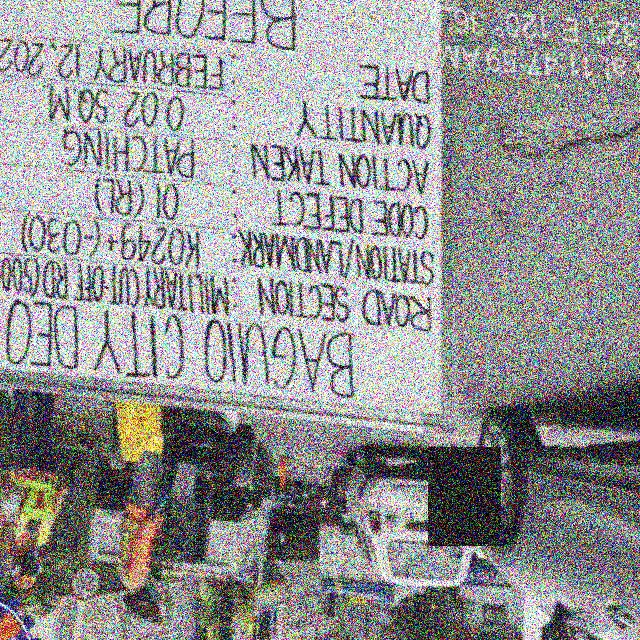 BAGUIO CITY DEO
ROAD SECTION : MILITARY CUT-OFF RD (S00
STATION/LANDMARK : K0249+(-030)
CODE DEFECT : 01 (RL)
ACTION TAKEN : PATCHING
QUANTITY : 0.02 SQ M
DATE : FEBRUARY 12, 202
BEFORE